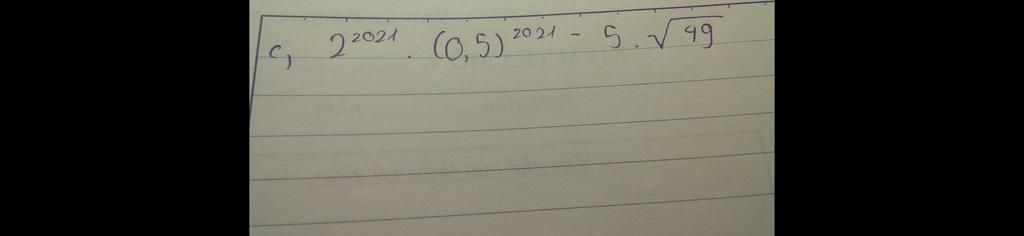 c, 2²⁰²¹ . (0,5)²⁰²¹ - 5 . √49